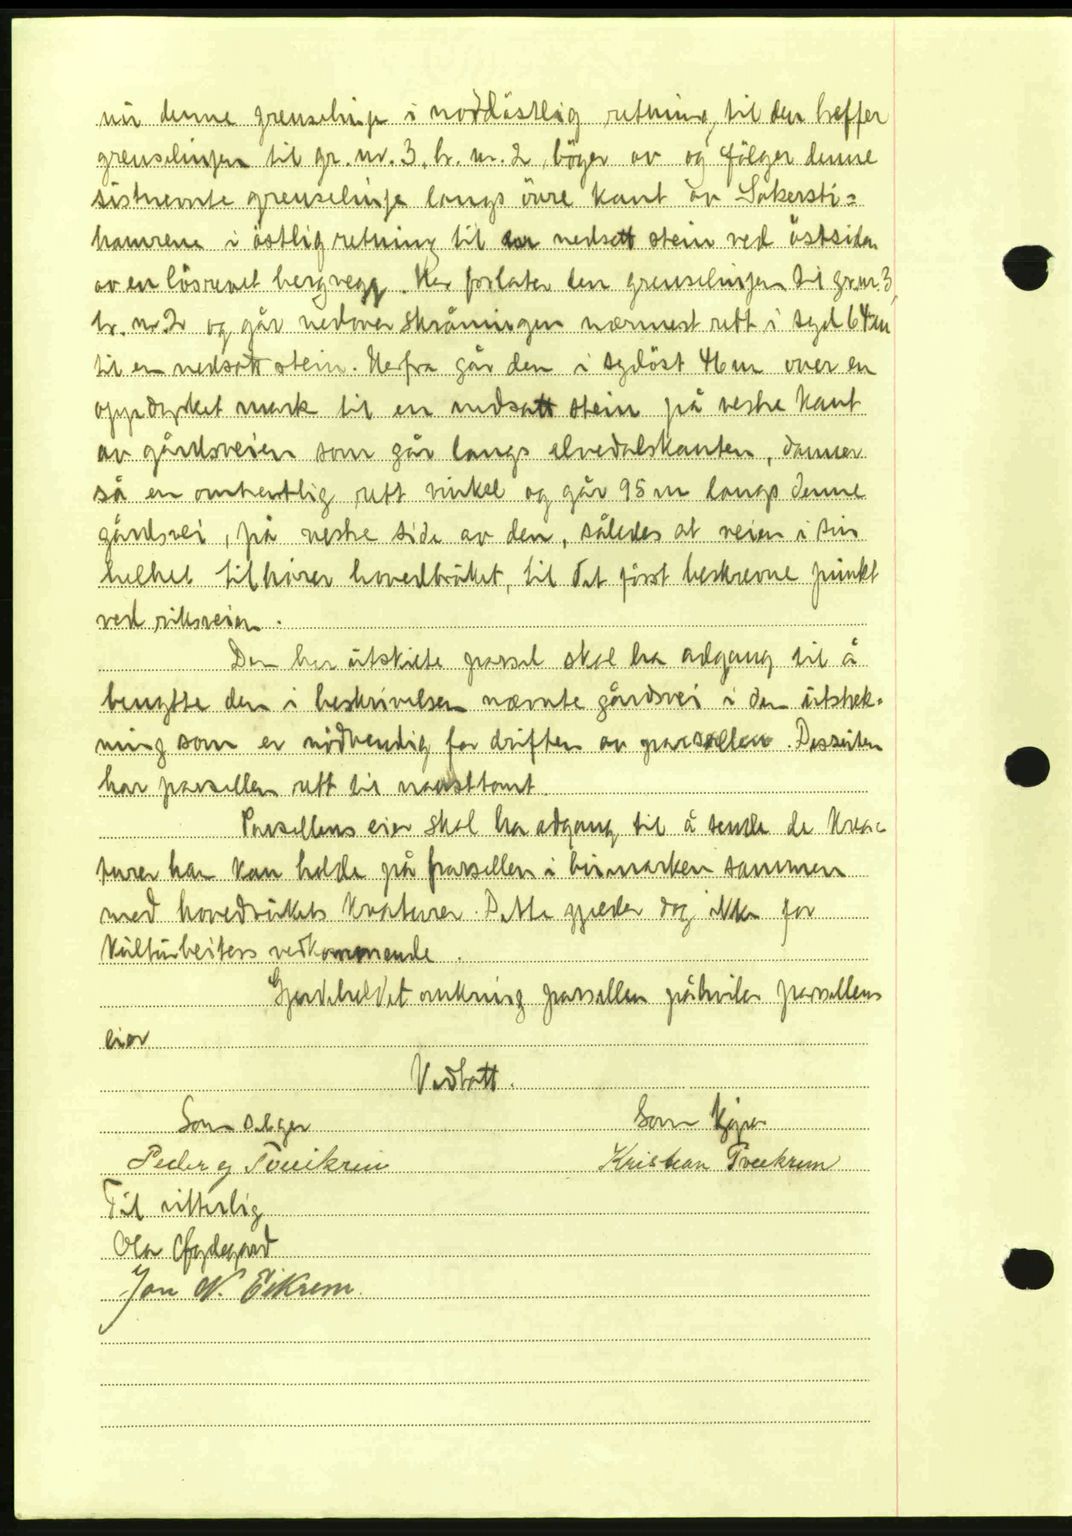 nu denne grenselinje i nordöstlig retning til den treffer
grenselinjen til gr. nr. 3, br. nr. 2, böyer av og fölger denne
sistnevnte grenselinje langs övre kant av Sakersti=
hamrene i östlig retning til en nedsatt stein ved östsiden
av en lösrevet bergvegg. Her forlater den grenselinjen til gr.nr. 3,
br. nr. 2 og går nedover skråningen nærmest rett i syd 64 m
til en nedsatt stein. Herfra går den i sydöst 46 m over en
oppdyrket mark til en nedsatt stein på vestre kant
av gårdsveien som går langs elvedalskanten, danner
så en omtrentlig rett vinkel og går 95 m langs denne
gårdsvei, på vestre side av den, således at veien i sin
helhet tilhörer hovedbruket, til det först beskrevne punkt
ved riksveien.
Den her utskilte parsel skal ha adgang til å
benytte den i beskrivelsen nevnte gårdsvei i den utstrek-
ning som er nödvendig for driften av parsellen. Dessuten
har parsellen rett til nausttomt.
Parsellens eier skal ha adgang til å sende de krea-
turer han kan holde på parsellen i bumarken sammen
med hovedbrukets kreaturer. Dette gjelder dog ikke for
kulturbeiters vedkommende.
Gjerdeholdet omkring parsellen påhviler parsellens
eier
Vedtatt.
Som selger Som kjöper
Peder J Tveeikrem Kristian Tveekrem
Til vitterlig
Ola
Jon N. Eikrem.